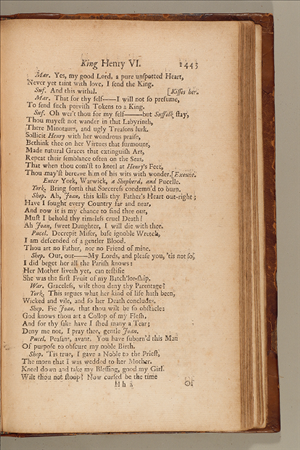 King Henry VI. 1443
Mar. Yes, my good Lord, a pure unspotted Heart,
Never yet taint with love, I send the King.
Suf. And this withal. [Kisses her.
Mar. That for thy self——I will not so presume,
To send such peevish Tokens to a King.
Suf. Oh wer't thou for my self——but Suffolk stay,
Thou mayest not wander in that Labyrinth,
There Minotaurs, and ugly Treasons lurk.
Sollicit Henry with her wondrous praise,
Bethink thee on her Virtues that surmount,
Made natural Graces that extinguish Art,
Repeat their semblance often on the Seas,
That when thou com'st to kneel at Henry's Feet,
Thou may'st bereave him of his wits with wonder. [Exeunt.
Enter York, Warwick, a Shepherd, and Pucelle.
York. Bring forth that Sorceress condemn'd to burn.
Shep. Ah, Joan, this kills thy Father's Heart out-right;
Have I sought every Country far and near,
And now it is my chance to find thee out,
Must I behold thy timeless cruel Death!
Ah Joan, sweet Daughter, I will die with thee.
Pucel. Decrepit Miser, base ignoble Wretch,
I am descended of a gentler Blood.
Thou art no Father, nor no Friend of mine.
Shep. Out, out——My Lords, and please you, 'tis not so,
I did beget her all the Parish knows:
Her Mother liveth yet, can testifie
She was the first Fruit of my Batch'lorship.
War. Graceless, wilt thou deny thy Parentage?
York. This argues what her kind of life hath been,
Wicked and vile, and so her Death concludes.
Shep. Fie Joan, that thou wilt be so obstacle:
God knows thou art a Collop of my Flesh,
And for thy sake have I shed many a Tear;
Deny me not, I pray thee, gentle Joan.
Pucel. Peasant, avant. You have suborn'd this Man
Of purpose to obscure my noble Birth.
Shep. 'Tis true, I gave a Noble to the Priest,
The morn that I was wedded to her Mother.
Kneel down and take my Blessing, good my Girl.
Wilt thou not stoop? Now cursed be the time
Of